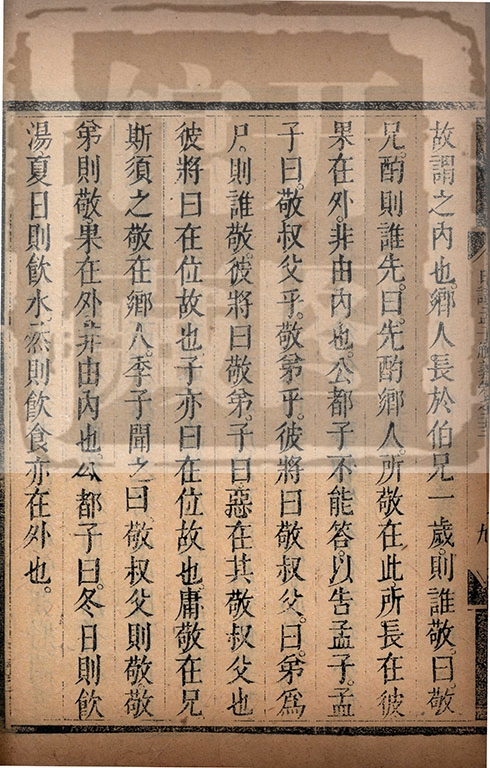 故謂之内也。鄉人長於伯兄一歲。則誰敬。曰敬
兄。酌則誰先。曰。先酌鄉人。所敬在此所長在彼
果在外。非由内也。公都子不能答。以告孟子。孟
子曰。敬叔父乎。敬弟乎。彼將曰敬叔父。曰。弟爲
尸。則誰敬。彼將曰敬弟。子曰。惡在其敬叔父也
彼將曰在位故也子亦曰在位故也庸敬在兄
斯須之敬在鄉人。季子聞之曰敬叔父則敬敬
弟則敬果在外非由内也。公都子曰。冬日則飲
湯夏日則飲水。然則飲食亦在外也。